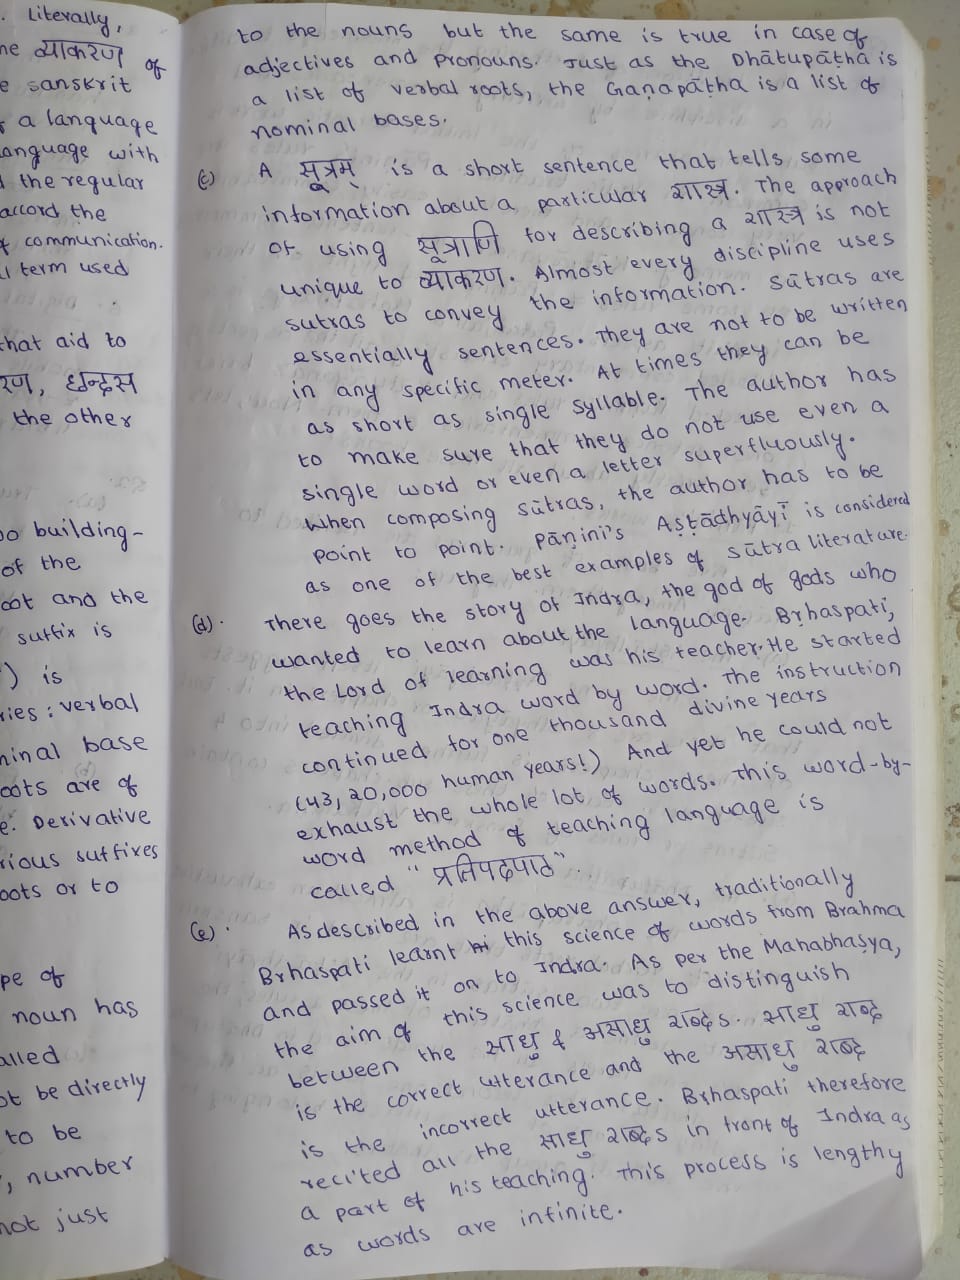 . Literally,
ne व्याकरण of
e sanskrit
r a language
anguage with
d the regular
accord the
f communication.
l term used
that aid to
रण, छन्द्रस
the other
wo building-
of the
oot and the
suffix is
) is
ries : verbal
minal base
oots are of
e. Derivative
rious suffixes
oots or to
pe of
noun has
alled
ot be directly
to be
, number
not just
to the nouns but the same is true in case of
adjectives and pronouns. Just as the Dhātupāṭha is
a list of verbal roots, the Gaṇapāṭha is a list of
nominal bases.
(c) A सूत्रम् is a short sentence that tells some
information about a particular शास्त्र. The approach
of using सूत्राणि for describing a शास्त्र is not
unique to व्याकरण. Almost every discipline uses
sutras to convey the information. sūtras are
essentially sentences. They are not to be written
in any specific meter. At times they can be
as short as single syllable. The author has
to make sure that they do not use even a
single word or even a letter superfluously.
When composing sūtras, the author has to be
point to point. Pāṇini's Aṣṭādhyāyī is considered
as one of the best examples of sūtra literature.
(d). There goes the story of Indra, the god of gods who
wanted to learn about the language. Bṛhaspati,
the Lord of learning was his teacher. He started
teaching Indra word by word. The instruction
continued for one thousand divine years
(43,20,000 human years!) And yet he could not
exhaust the whole lot of words. This word-by-
word method of teaching language is
called "प्रतिपदपाठ".
(e). As described in the above answer, traditionally
Bṛhaspati learnt this science of words from Brahma
and passed it on to Indra. As per the Mahabhaṣya,
the aim of this science was to distinguish
between the साधु & असाधु शब्दs. साधु शब्द
is the correct utterance and the असाधु शब्द
is the incorrect utterance. Bṛhaspati therefore
recited all the साधु शब्दs in front of Indra as
a part of his teaching. This process is lengthy
as words are infinite.